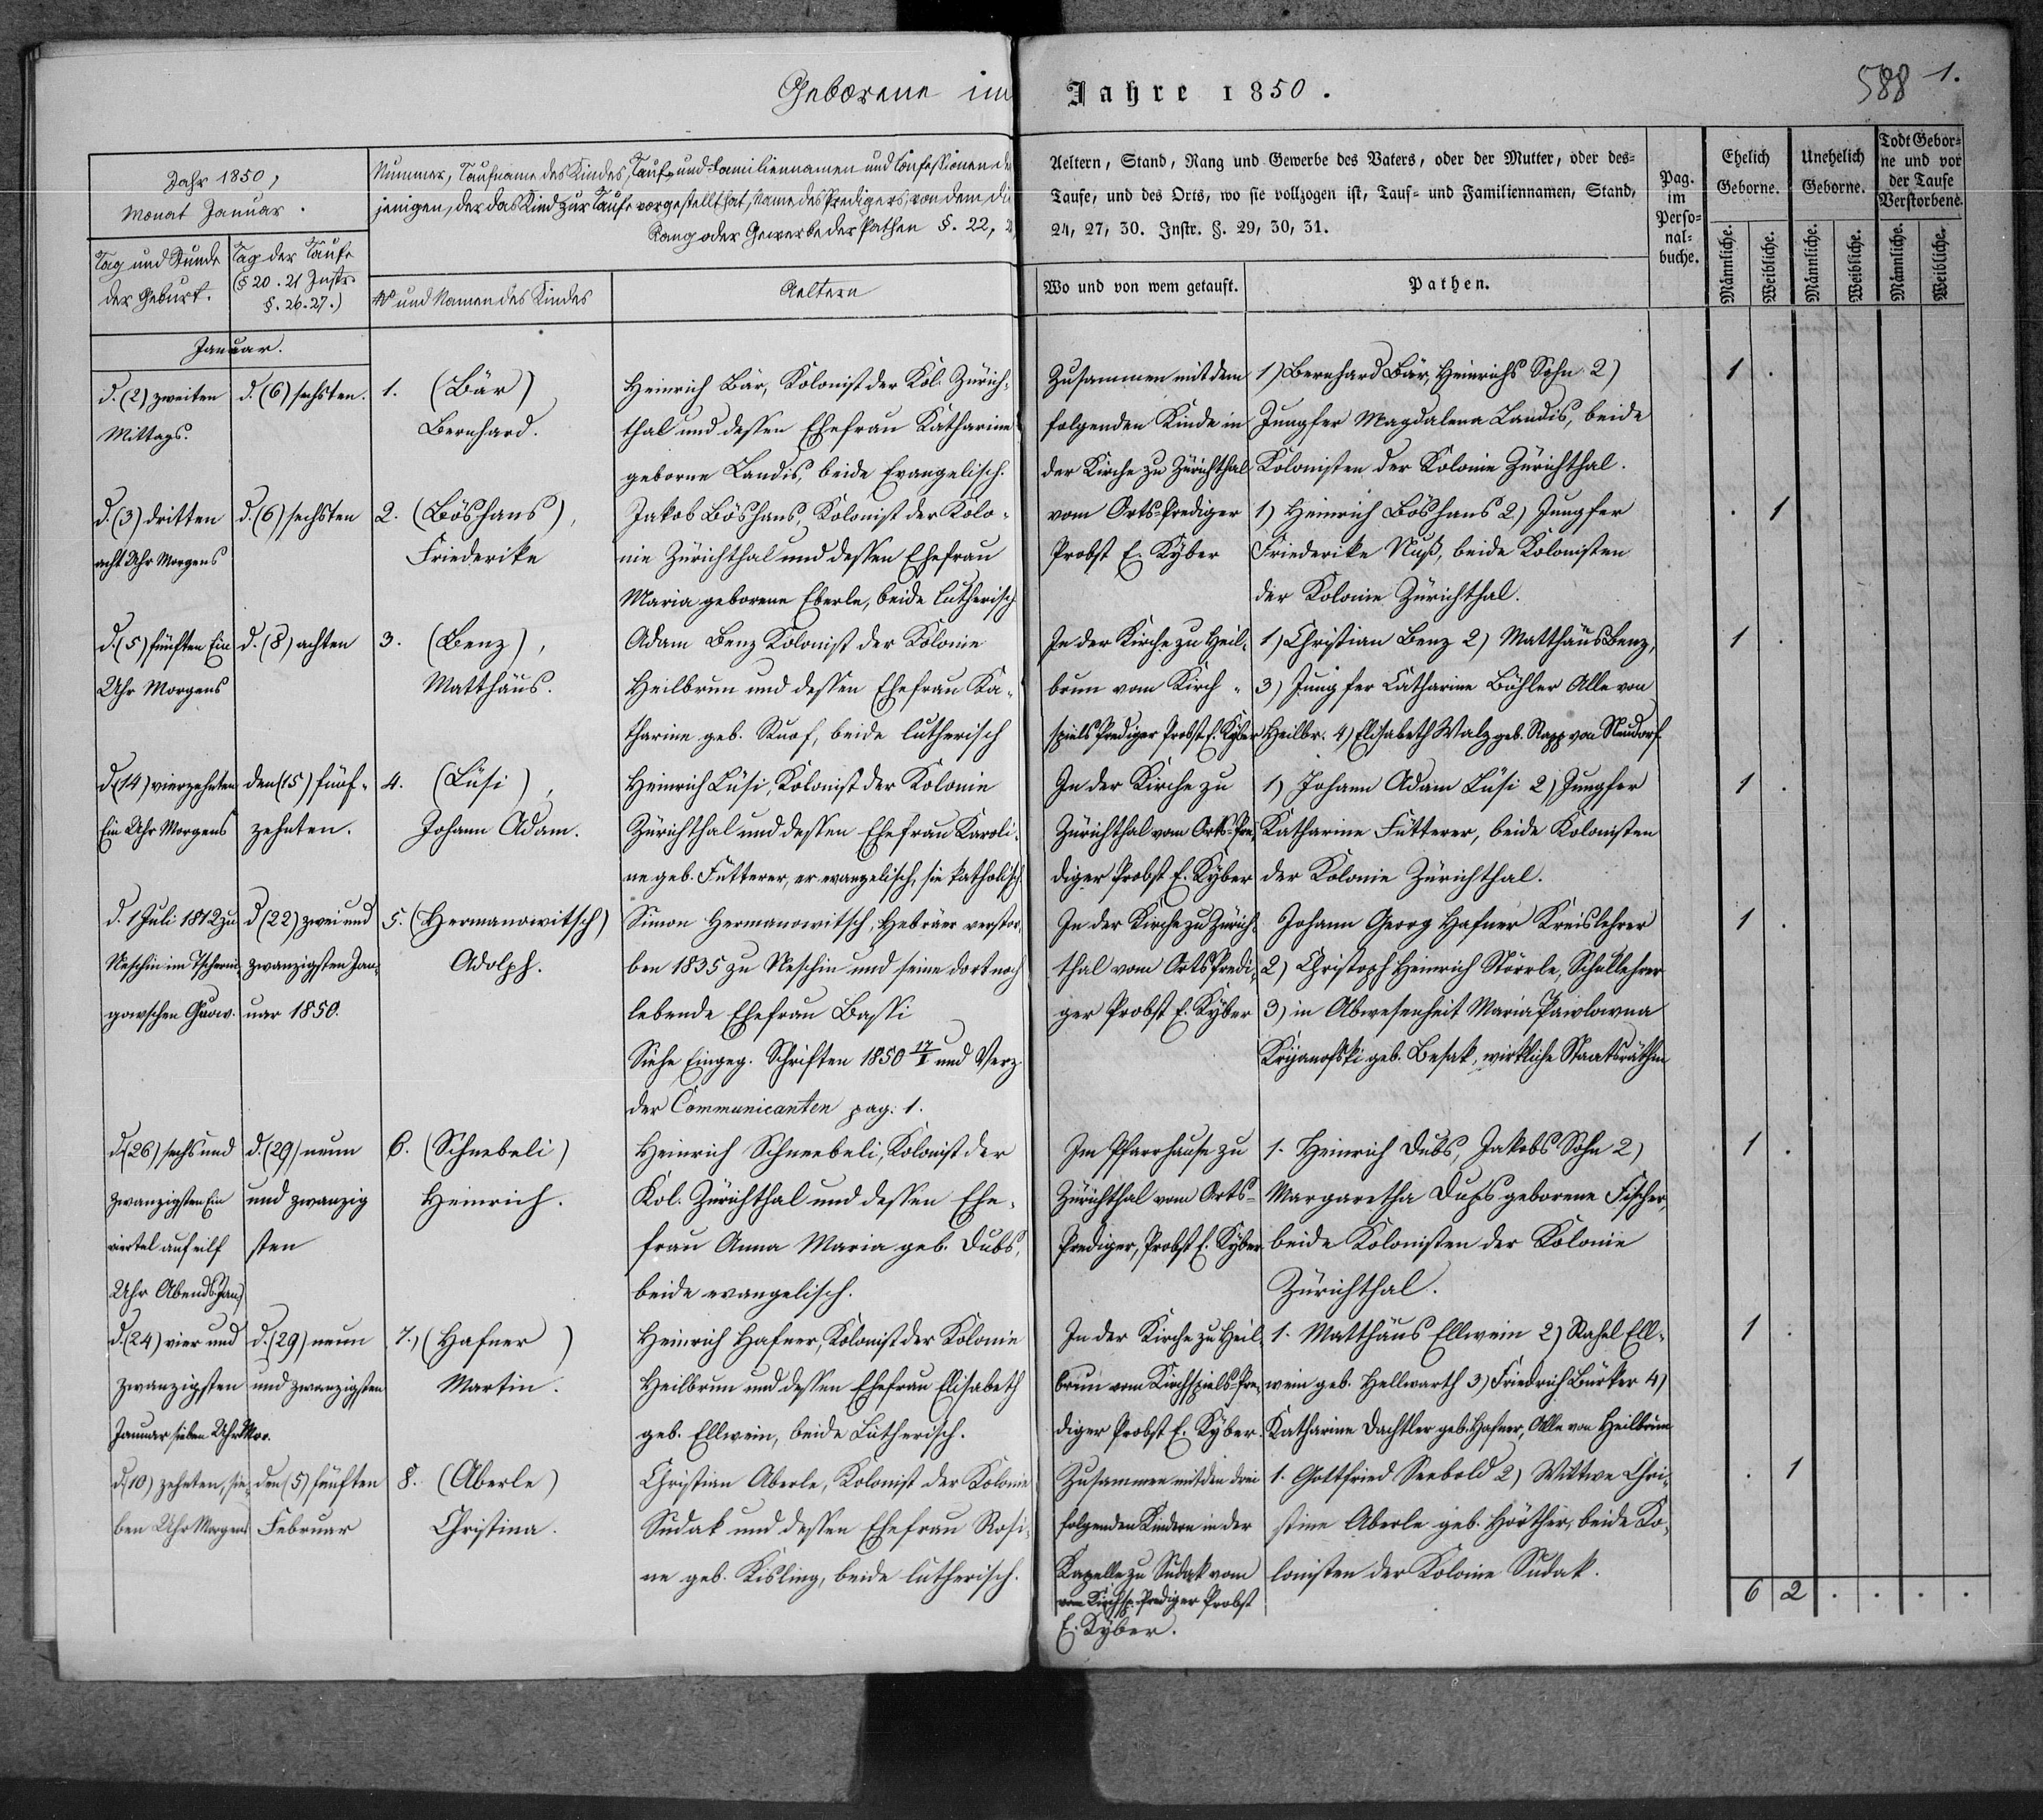 Geborene im Jahre 1850.
588 1.
Jahr 1850,
Monat Januar.
Tag und Stunde
der Geburt.
Tag der Taufe
(§ 20. 21 Instr.
§. 26. 27.)
Nummer, Taufname des Kindes, Tauf- und Familiennamen und Confessionen der
jenigen, der das Kind zur Taufe vorgestellt hat, Name des Predigers, von dem die
Rang oder Gewerbe der Pathen §. 22,
No und Namen des Kindes
Aeltern
Aeltern, Stand, Rang und Gewerbe des Vaters, oder der Mutter, oder des-
Taufe, und des Orts, wo sie vollzogen ist, Tauf- und Familiennamen, Stand,
24, 27, 30. Instr. §. 29, 30, 31.
Wo und von wem getauft.
Pathen.
Pag.
im
Perso-
nal-
buche.
Ehelich
Geborne.
Unehelich
Geborne.
Todt Gebor-
ne und vor
der Taufe
Verstorbene.
Männliche.
Weibliche.
Männliche.
Weibliche.
Männliche.
Weibliche.
Januar.
d. (2) zweiten
Mittags.
d. (6) sechsten.
1. (Bär)
Bernhard.
Heinrich Bär, Kolonist der Kol. Zürich-
thal und dessen Ehefrau Katharine
geborne Landis, beide Evangelisch.
Zusammen mit dem
folgenden Kinde in
der Kirche zu Zürichthal
1) Bernhard Bär, Heinrichs Sohn 2)
Jungfer Magdalena Landis, beide
Kolonisten der Kolonie Zürichthal.
1 .
d. (3) dritten
acht Uhr Morgens
d. (6) sechsten
2. (Böshans),
Friederike
Jakob Böshans, Kolonist der Kolo-
nie Zürichthal und dessen Ehefrau
Maria geborene Eberle, beide lutherisch
vom Orts-Prediger
Probst E. Kyber
1) Heinrich Böshans 2) Jungfer
Friederike Nuß, beide Kolonisten
der Kolonie Zürichthal.
. 1
d. (5) fünften Ein
Uhr Morgens
d. (8) achten
3. (Benz),
Matthäus.
Adam Benz Kolonist der Kolonie
Heilbrun und dessen Ehefrau Ka-
tharine geb. Ruof, beide lutherisch
In der Kirche zu Heil-
brun vom Kirch-
spiels Prediger Probst E. Kyber
1) Christian Benz 2) Matthäus Benz,
3) Jungfer Catharine Böhler Alle von
Heilbr. 4) Elisabeth Walz geb. Rapp von Neudorf
1 .
d. (14) vierzehnten
Ein Uhr Morgens
den (15) fünf-
zehnten.
4. (Lüsi),
Johann Adam.
Heinrich Lüsi, Kolonist der Kolonie
Zürichthal und dessen Ehefrau Karoli-
ne geb. Fütterer, er evangelisch, sie katholisch.
In der Kirche zu
Zürichthal vom Orts-Pre-
diger Probst E. Kyber
1) Johann Adam Lüsi 2) Jungfer
Katharine Fütterer, beide Kolonisten
der Kolonie Zürichthal.
1 .
d. 1 Juli 1812 zu
Neschin im Tscherni-
gowschen Guow.
d (22) zwei und
zwanzigsten Jan-
uar 1850.
5. (Hermanowitsch)
Adolph.
Simon Hermanowitsch, Hebräer verstor-
ben 1835 zu Neschin und seine dort noch
lebende Ehefrau Bassi
Siehe Eingeg. Schriften 1850 17/I und Verz.
der Communicanten pag. 1.
In der Kirche zu Zürich-
thal vom Orts Predi-
ger Probst E. Kyber
Johann Georg Hafner Kreislehrer
2) Christoph Heinrich Störrle, Schullehrer
3) in Abwesenheit Maria Pawlowna
Krijanofski geb. Besak, wirkliche Staatsräthin
1 .
d. (26) sechs und
zwanzigsten Ein
viertel auf eilf
Uhr Abends Jan.
d. (29) neun
und zwanzig
sten
6. (Schnebeli)
Heinrich.
Heinrich Schneebeli, Kolonist der
Kol. Zürichthal und dessen Ehe-
frau Anna Maria geb. Dubs,
beide evangelisch.
Im Pfarrhause zu
Zürichthal vom Orts-
Prediger, Probst E. Kyber
1. Heinrich Dubs, Jakobs Sohn 2)
Margaretha Dups geborene Fischer,
beide Kolonisten der Kolonie
Zürichthal.
1 .
d. (24) vier und
zwanzigsten
Januar sieben Uhr Mor.
d. (29) neun
und zwanzigsten
7., (Hafner)
Martin.
Heinrich Hafner, Kolonist der Kolonie
Heilbrun und dessen Ehefrau Elisabeth
geb. Ellwein, beide Lutherisch.
In der Kirche zu Heil-
brun vom Kirchspiels-Pre-
diger Probst E. Kyber.
1. Matthäus Ellwein 2) Rahel Ell-
wein geb. Hellwarth 3) Friedrich Bürker 4)
Katharine Dachtler geb. Hafner, Alle von Heilbrun
1 .
d. (10) zehnten, sie-
ben Uhr Morgens
den (5) fünften
Februar
8. (Aberle)
Christina.
Christian Aberle, Kolonist der Kolonie
Sudak und dessen Ehefrau Rosi-
ne geb. Kisling, beide lutherisch.
Zusammen mit den drei
folgenden Kindern in der
Kapelle zu Sudak vom
vom Kirchsp. Prediger Probst
E. Kyber.
1. Gottfried Seebold 2) Wittwe Chri-
stine Aberle geb. Hörther, beide Ko-
lonisten der Kolonie Sudak.
. 1
6 2 . . . .